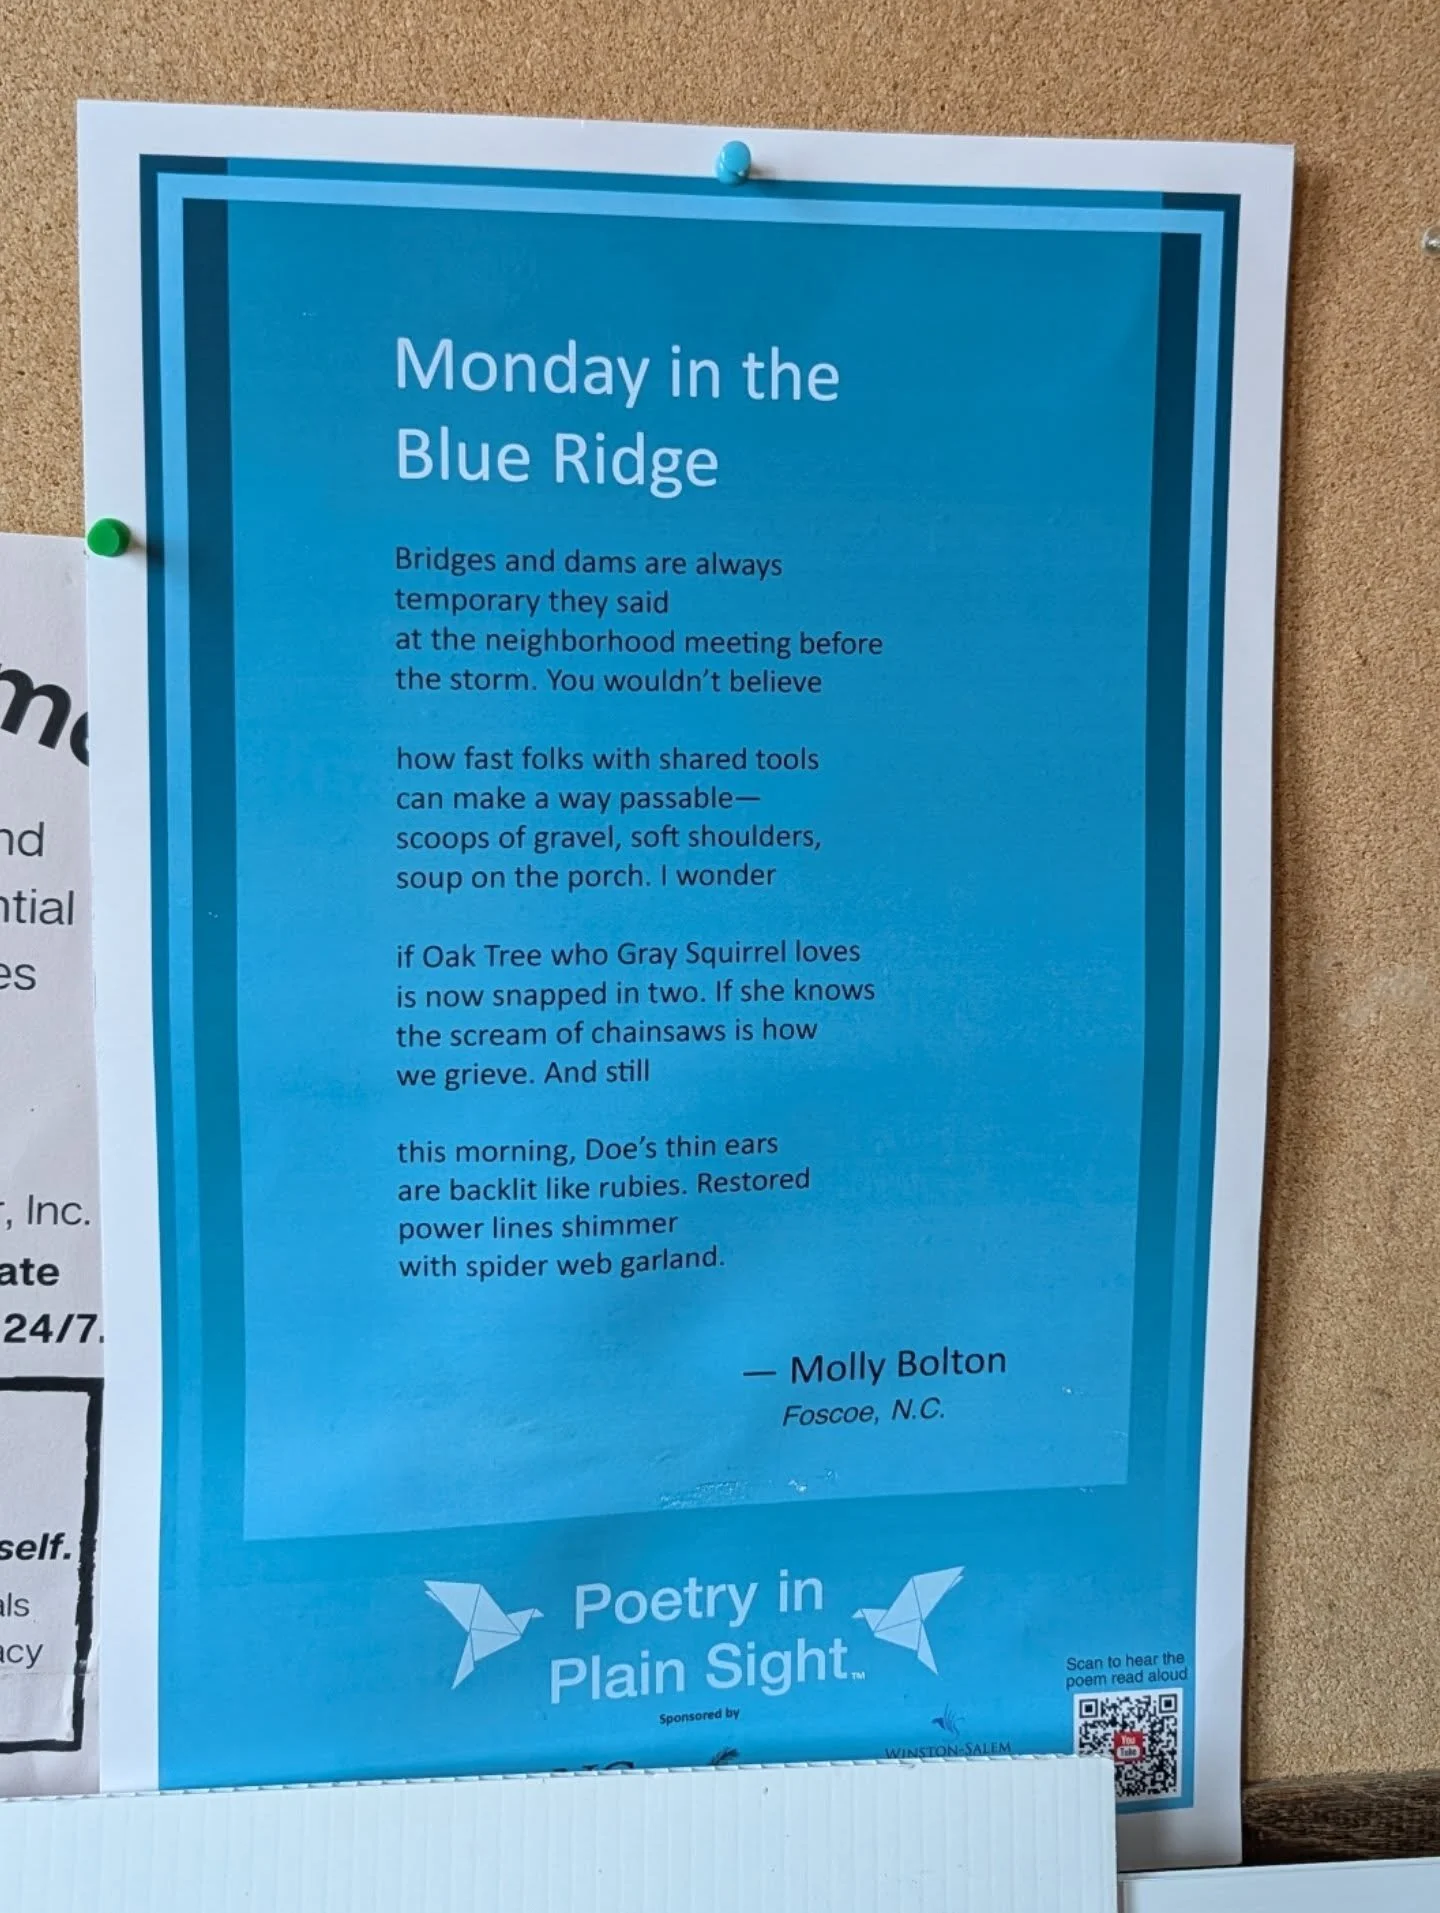 Monday in the
Blue Ridge
Bridges and dams are always
temporary they said
at the neighborhood meeting before
the storm. You wouldn't believe
how fast folks with shared tools
can make a way passable—
scoops of gravel, soft shoulders,
soup on the porch. I wonder
if Oak Tree who Gray Squirrel loves
is now snapped in two. If she knows
the scream of chainsaws is how
we grieve. And still
this morning, Doe's thin ears
are backlit like rubies. Restored
power lines shimmer
with spider web garland.
— Molly Bolton
Foscoe, N.C.
Poetry in
Plain Sight™
Sponsored by
WINSTON-SALEM
Scan to hear the
poem read aloud
You
Tube
, Inc.
24/7.
self.